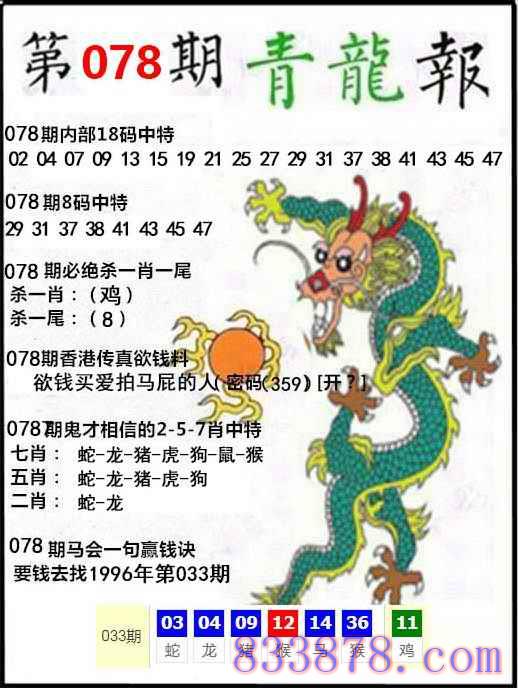 第078期青龍報
078期内部18码中特
02 04 07 09 13 15 19 21 25 27 29 31 37 38 41 43 45 47
078期8码中特
29 31 37 38 41 43 45 47
078 期必绝杀一肖一尾
杀一肖：（鸡）
杀一尾：（8）
078期香港传真欲钱料
欲钱买爱拍马屁的人(密码(359)[开？]
078期鬼才相信的2-5-7肖中特
七肖： 蛇-龙-猪-虎-狗-鼠-猴
五肖： 蛇-龙-猪-虎-狗
二肖： 蛇-龙
078 期马会一句赢钱诀
要钱去找1996年第033期
033期 03 04 09 12 14 36 11
蛇 龙 猪 猴 马 猴 鸡
833878.com